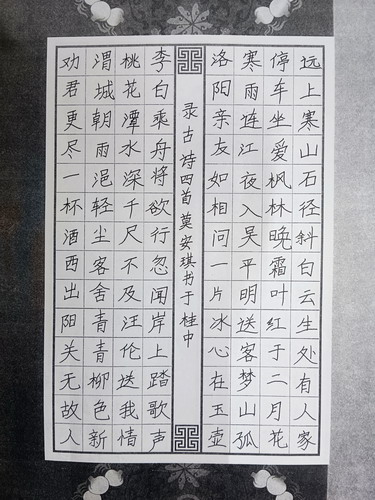 远上寒山石径斜白云生处有人家
停车坐爱枫林晚霜叶红于二月花
寒雨连江夜入吴平明送客梦山孤
洛阳亲友如相问一片冰心在玉壶
录古诗四首 莫安琪书于桂中
李白乘舟将欲行忽闻岸上踏歌声
桃花潭水深千尺不及汪伦送我情
渭城朝雨浥轻尘客舍青青柳色新
劝君更尽一杯酒西出阳关无故人